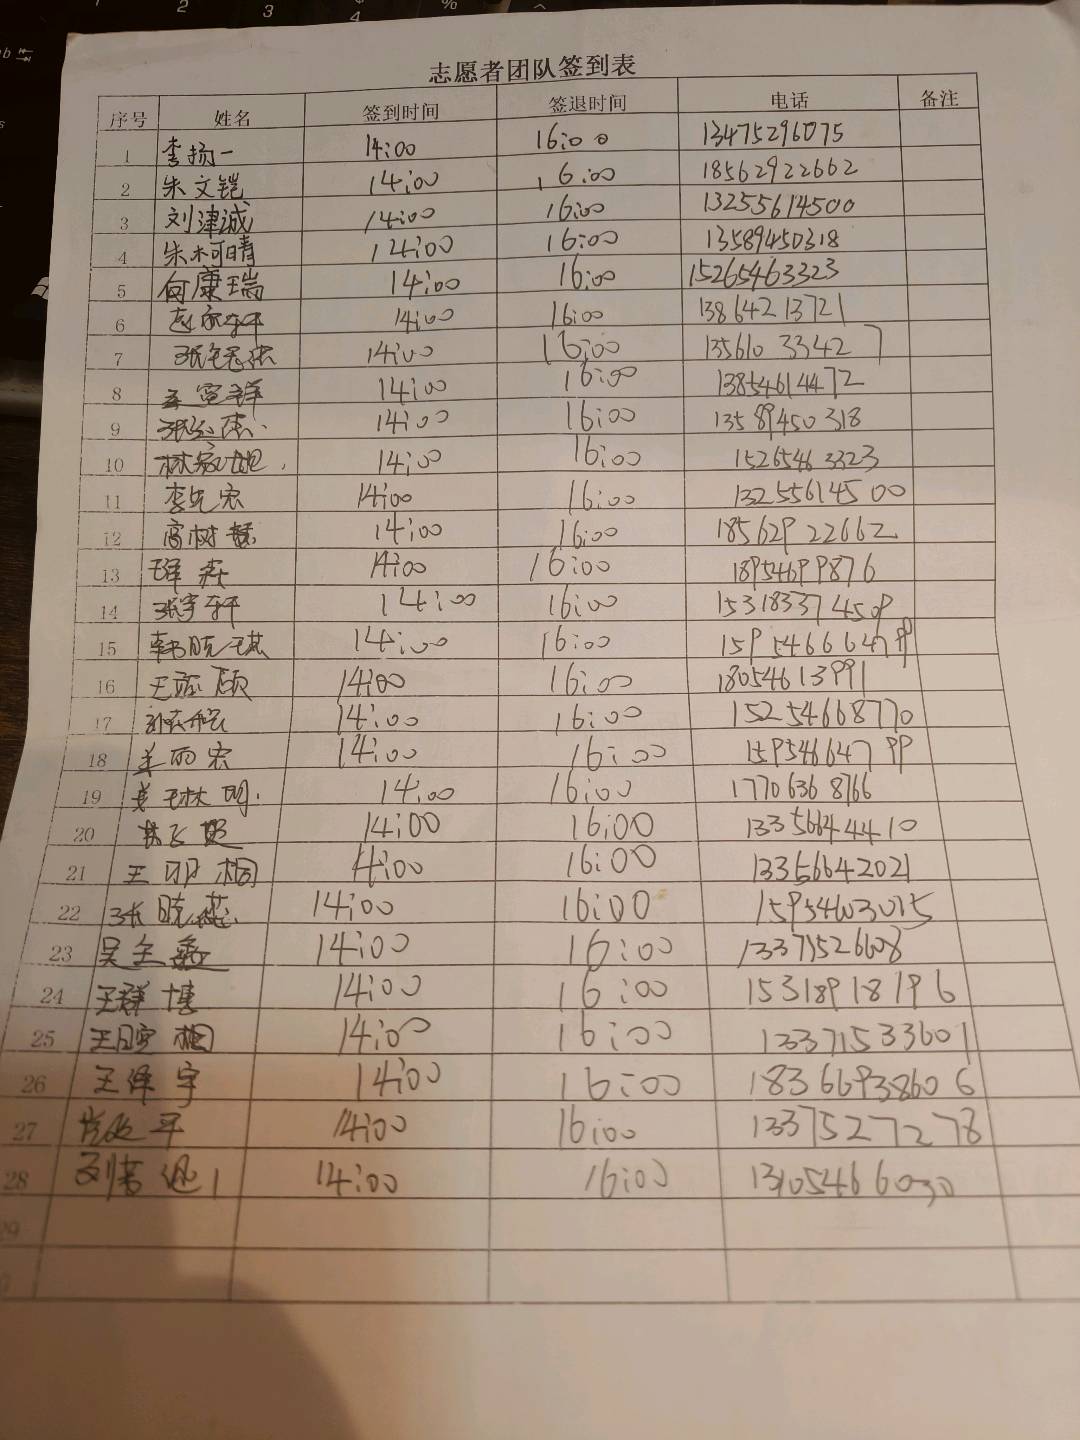 志愿者团队签到表
序号 姓名 签到时间 签退时间 电话 备注
1 李扬一 14:00 16:00 13475296075
2 朱文铠 14:00 16:00 18562922662
3 刘津诚 14:00 16:00 13255614500
4 朱柯晴 14:00 16:00 13589450318
5 何康瑞 14:00 16:00 15265463323
6 14:00 16:00 13864213721
7 14:00 16:00 13561033427
8 14:00 16:00 13854614472
9 14:00 16:00 13589450318
10 14:00 16:00 15265463323
11 李先宏 14:00 16:00 13255614500
12 高树慧 14:00 16:00 18562922662
13 14:00 16:00 18954699876
14 张宇轩 14:00 16:00 15318337459
15 韩晓琪 14:00 16:00 15954666479
16 14:00 16:00 18054613991
17 14:00 16:00 15254668770
18 姜丽宏 14:00 16:00 15954664799
19 姜琳明 14:00 16:00 17706368766
20 14:00 16:00 13356644410
21 王明桐 14:00 16:00 13356642021
22 张晓蕊 14:00 16:00 15954603015
23 14:00 16:00 13371526608
24 王群博 14:00 16:00 15318918196
25 14:00 16:00 13371533601
26 王泽宇 14:00 16:00 18366938606
27 14:00 16:00 13375277278
28 14:00 16:00 13105466030